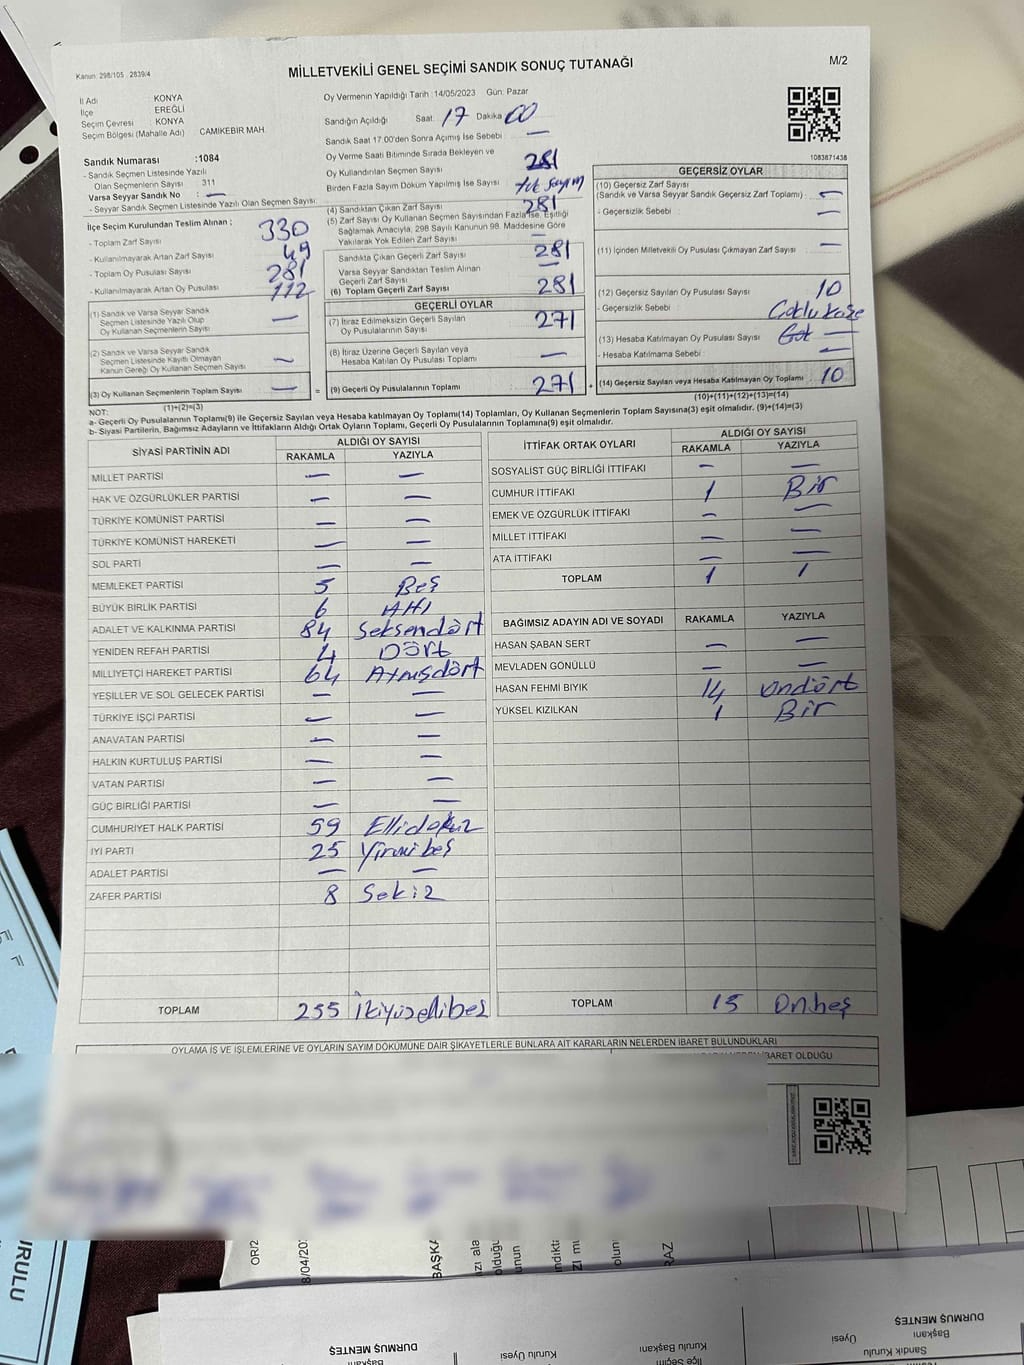 Kanun: 298/105 , 2839/4
MİLLETVEKİLİ GENEL SEÇİMİ SANDIK SONUÇ TUTANAĞI
M/2
İl Adı : KONYA
İlçe : EREĞLİ
Seçim Çevresi : KONYA
Seçim Bölgesi (Mahalle Adı) : CAMIKEBIR MAH.
Oy Vermenin Yapıldığı Tarih :14/05/2023 Gün: Pazar
Sandığın Açıldığı Saat: 17 Dakika 00
Sandık Saat 17.00'den Sonra Açımış İse Sebebi : —
Oy Verme Saati Bitiminde Sırada Bekleyen ve
Oy Kullandırılan Seçmen Sayısı : 281
Birden Fazla Sayım Döküm Yapılmış İse Sayısı : tek sayım
Sandık Numarası :1084
- Sandık Seçmen Listesinde Yazılı
Olan Seçmenlerin Sayısı : 311
Varsa Seyyar Sandık No : —
- Seyyar Sandık Seçmen Listesinde Yazılı Olan Seçmen Sayısı:
İlçe Seçim Kurulundan Teslim Alınan ;
- Toplam Zarf Sayısı : 330
- Kullanılmayarak Artan Zarf Sayısı : 49
- Toplam Oy Pusulası Sayısı : 281
- Kullanılmayarak Artan Oy Pusulası : 112
(1) Sandık ve Varsa Seyyar Sandık
Seçmen Listesinde Yazılı Olup
Oy Kullanan Seçmenlerin Sayısı : —
(2) Sandık ve Varsa Seyyar Sandık
Seçmen Listesinde Kayıtlı Olmayan
Kanun Gereği Oy Kullanan Seçmen Sayısı : —
(3) Oy Kullanan Seçmenlerin Toplam Sayısı : —
(1)+(2)=(3)
(4) Sandıktan Çıkan Zarf Sayısı : 281
(5) Zarf Sayısı Oy Kullanan Seçmen Sayısından Fazla ise, Eşitliği
Sağlamak Amacıyla, 298 Sayılı Kanunun 98. Maddesine Göre
Yakılarak Yok Edilen Zarf Sayısı : —
Sandıkta Çıkan Geçerli Zarf Sayısı : 281
Varsa Seyyar Sandıktan Teslim Alınan
Geçerli Zarf Sayısı : —
(6) Toplam Geçerli Zarf Sayısı : 281
GEÇERLİ OYLAR
(7) İtiraz Edilmeksizin Geçerli Sayılan
Oy Pusulasının Sayısı : 271
(8) İtiraz Üzerine Geçerli Sayılan veya
Hesaba Katılan Oy Pusulası Toplamı : —
= (9) Geçerli Oy Pusulalarının Toplamı : 271
1083871438
GEÇERSİZ OYLAR
(10) Geçersiz Zarf Sayısı
(Sandık ve Varsa Seyyar Sandık Geçersiz Zarf Toplamı) : —
- Geçersizlik Sebebi : —
(11) İçinden Milletvekili Oy Pusulası Çıkmayan Zarf Sayısı : —
(12) Geçersiz Sayılan Oy Pusulası Sayısı : 10
- Geçersizlik Sebebi :
(13) Hesaba Katılmayan Oy Pusulası Sayısı :
- Hesaba Katılmama Sebebi : —
+ (14) Geçersiz Sayılan veya Hesaba Katılmayan Oy Toplamı : 10
(10)+(11)+(12)+(13)=(14)
NOT:
a- Geçerli Oy Pusulalarının Toplamı(9) ile Geçersiz Sayılan veya Hesaba katılmayan Oy Toplamı(14) Toplamları, Oy Kullanan Seçmenlerin Toplam Sayısına(3) eşit olmalıdır. (9)+(14)=(3)
b- Siyasi Partilerin, Bağımsız Adayların ve İttifakların Aldığı Ortak Oyların Toplamı, Geçerli Oy Pusulalarının Toplamına(9) eşit olmalıdır.
SİYASİ PARTİNİN ADI ALDIĞI OY SAYISI
RAKAMLA YAZIYLA
MİLLET PARTİSİ — —
HAK VE ÖZGÜRLÜKLER PARTİSİ — —
TÜRKİYE KOMÜNİST PARTİSİ — —
TÜRKİYE KOMÜNİST HAREKETİ — —
SOL PARTİ — —
MEMLEKET PARTİSİ 5 Beş
BÜYÜK BİRLİK PARTİSİ 6 Altı
ADALET VE KALKINMA PARTİSİ 84 Seksendört
YENİDEN REFAH PARTİSİ 4 Dört
MİLLİYETÇİ HAREKET PARTİSİ 64 Atmışdört
YEŞİLLER VE SOL GELECEK PARTİSİ — —
TÜRKİYE İŞÇİ PARTİSİ — —
ANAVATAN PARTİSİ — —
HALKIN KURTULUŞ PARTİSİ — —
VATAN PARTİSİ — —
GÜÇ BİRLİĞİ PARTİSİ — —
CUMHURİYET HALK PARTİSİ 59 Ellidokuz
İYİ PARTİ 25 Yirmibeş
ADALET PARTİSİ — —
ZAFER PARTİSİ 8 Sekiz
TOPLAM 255 İkiyüzellibeş
İTTİFAK ORTAK OYLARI ALDIĞI OY SAYISI
RAKAMLA YAZIYLA
SOSYALİST GÜÇ BİRLİĞİ İTTİFAKI — —
CUMHUR İTTİFAKI 1 Bir
EMEK VE ÖZGÜRLÜK İTTİFAKI — —
MİLLET İTTİFAKI — —
ATA İTTİFAKI — —
TOPLAM 1 1
BAĞIMSIZ ADAYIN ADI VE SOYADI RAKAMLA YAZIYLA
HASAN ŞABAN SERT — —
MEVLADEN GÖNÜLLÜ — —
HASAN FEHMI BIYIK 14 Ondört
YÜKSEL KIZILKAN 1 Bir
TOPLAM 15 Onbeş
OYLAMA İŞ VE İŞLEMLERİNE VE OYLARIN SAYIM DÖKÜMÜNE DAİR ŞİKAYETLERLE BUNLARA AİT KARARLARIN NELERDEN İBARET BULUNDUKLARI
BARET OLDUĞU
URULU
OR/2
BAŞKA
olduğu
unun
olun
RAZ
DURMUŞ MENTEŞ
Başkanı
Kurulu Üyesi
Kurulu Başkanı
İlçe Seçim
DURMUŞ MENTEŞ
Başkanı
Sandık Kurulu
Üyesi